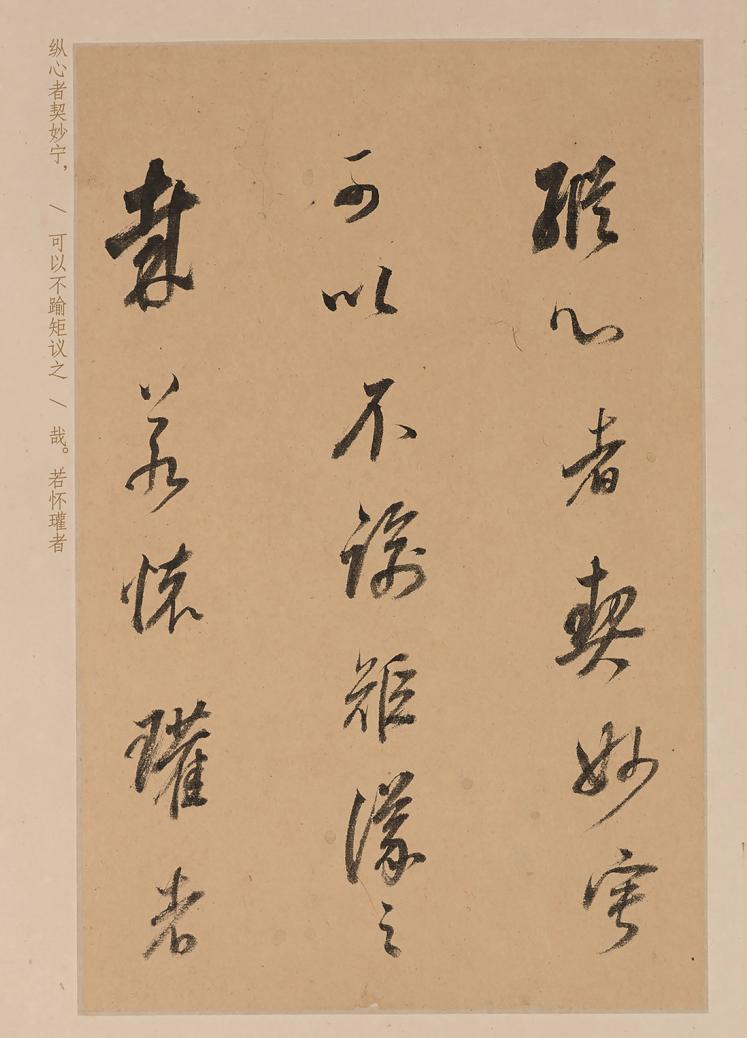 縱心者契妙寧
可以不踰矩議之
哉若懷瓘者
纵心者契妙宁， \ 可以不踰矩议之 \ 哉。若怀瓘者